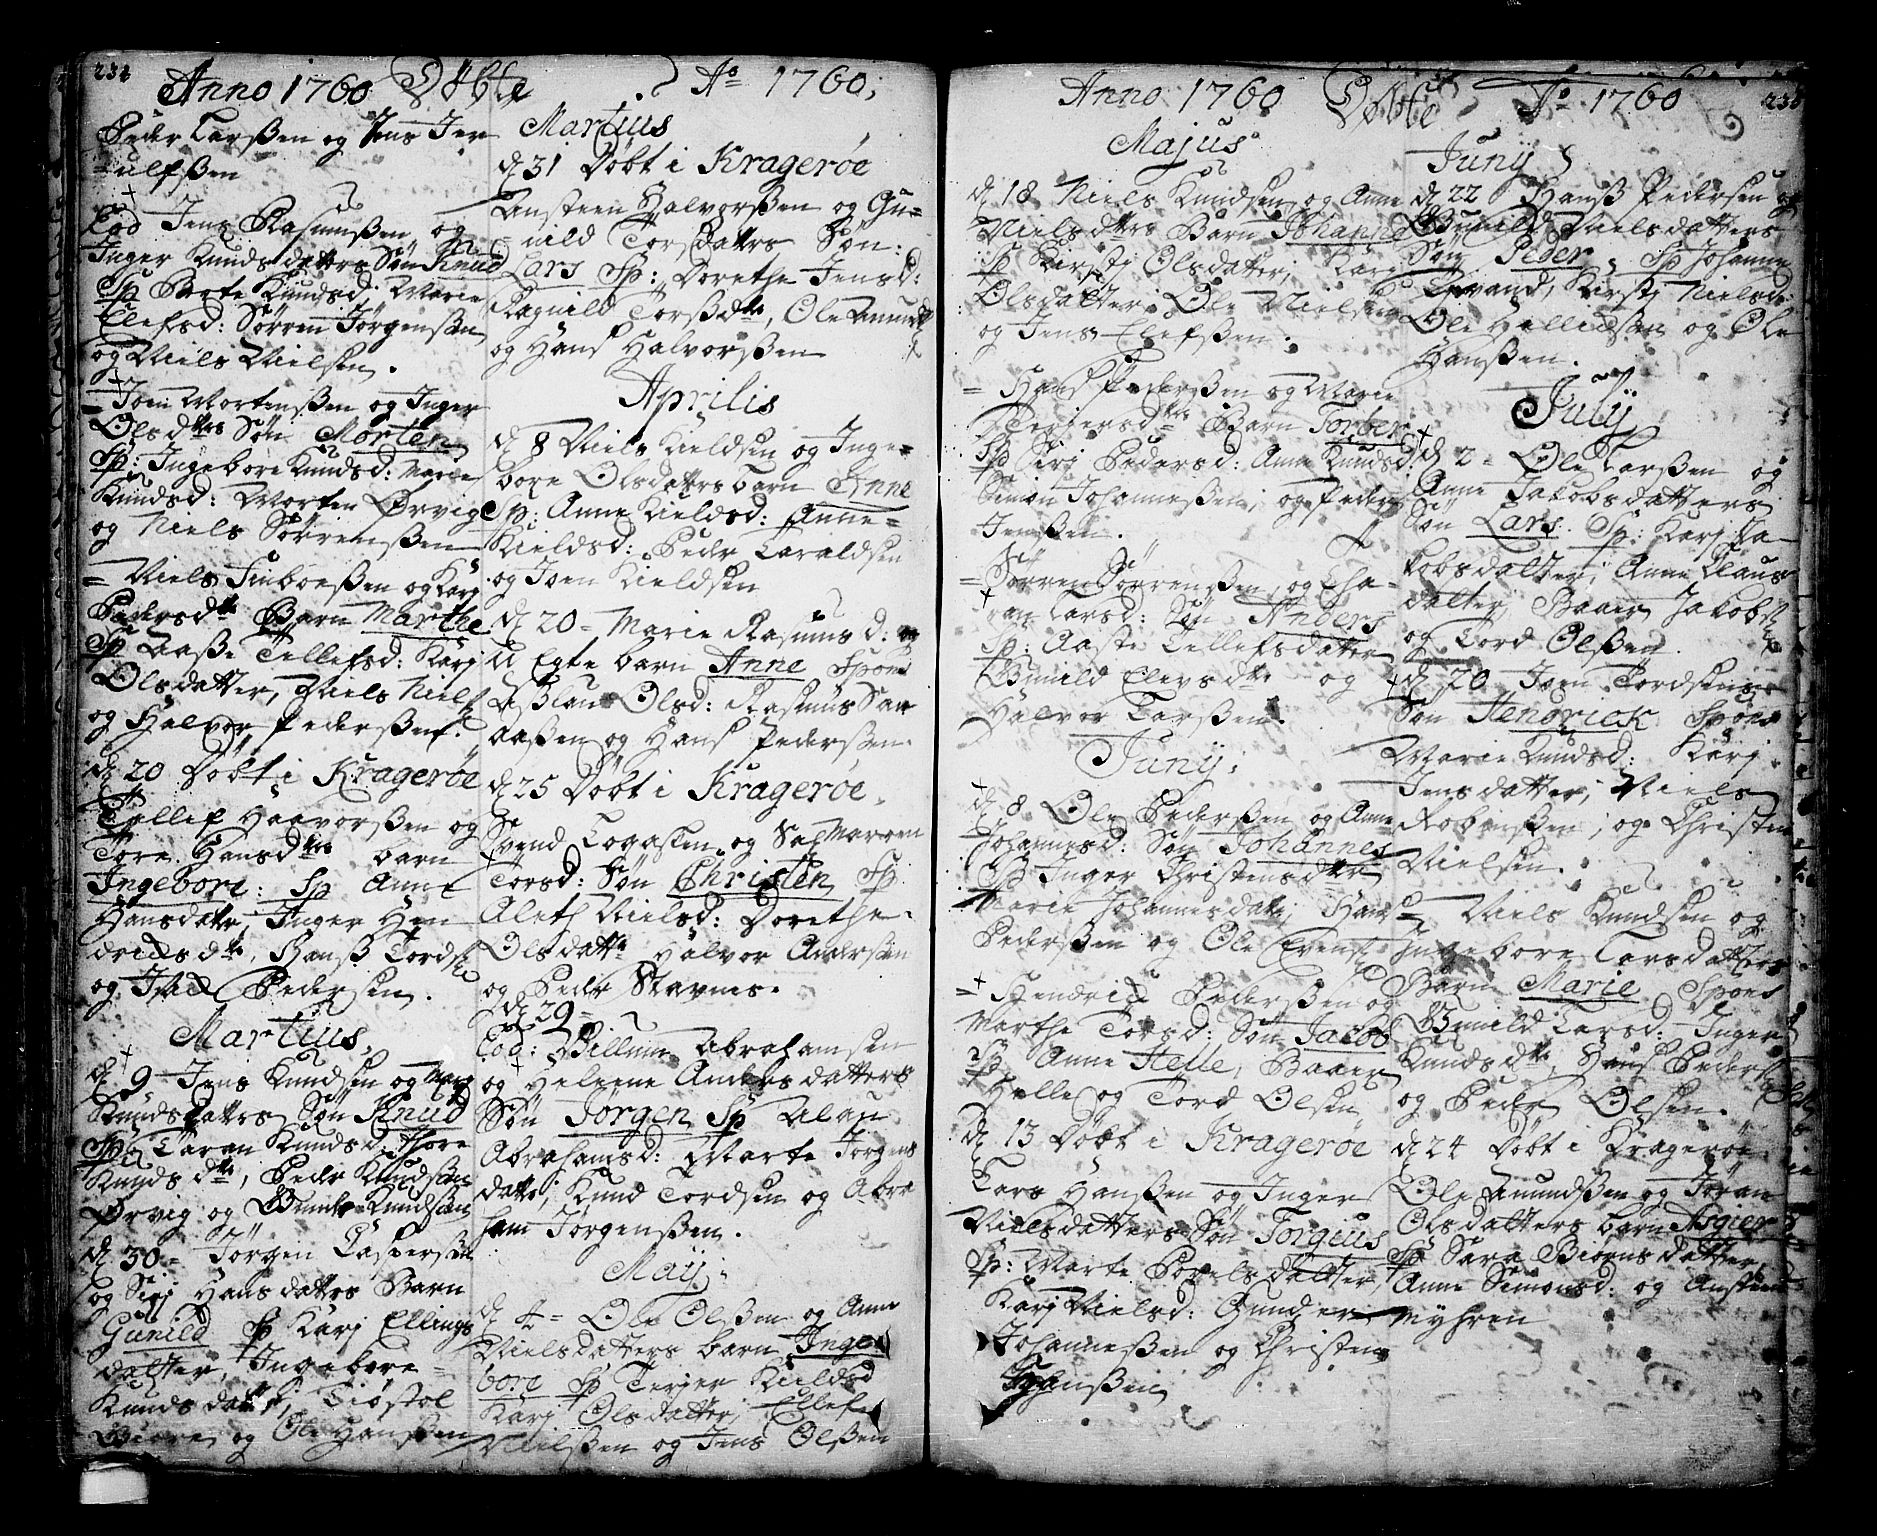 234
Anno 1760 Døbte Ao 1760;
Peder Larßen og Jens Jer
ulfßen
Eod Jens Rasmußen og
Inger Knudsdattrs Søn Knud
Sp Berte Knudsd; Marie
Elefsd: Sørren Jørgenßen
og Niels Nielsen.
= Joen Mortenßen og Inger
Olsdttrs Søn Morten
Sp: Ingebore Knudsd: Marie
Knudsd: Morten Ørvig
og Niels Sørrenßen
= Niels Simonßen og Karj
Pedersdtr Barn Marthe
Sp Aaße Tellefsd: Karj
Olsdatter, Niels Niels
og Halvor Pederßen.
d 20 Døbt i Kragerøe
Tellef Haavorßen og
Tore Hansdttrs barn
Ingebore: Sp Anne
Hansdatr, Inger Hen
dricksdtr, Hanß Tords
og Isac Pedersen.
Martius
d 9 Jens Knudsen og Marj
Knudsdattrs Søn Knud
Sp: Taran Knudsd, Thore
Knudsdtr, Peder Knudßen
Ørvig og Knudßen
d 30 = Jørgen Casperßen
og Sirj Hansdattrs Barn
Gunild Sp Karj Ellings
datter, Ingebore =
Knudsdattr; Tiøstol
og Ole Hanßen
Martius
d 31 Døbt i Kragerøe
Ansteen Halvorßen og Gu=
=nild Torsdattrs Søn:
Lars Sp: Dorethe Jensd:
Ragnild Torßdtr, Ole Amunds
og Hans Halvorßen
Aprilis
d 8 Niels Kieldsen og Inge=
bore Olsdattrs barn Anne
Sp: Anne Kieldsd: Anne=
Kieldsd: Peder Taraldsen
og Joen Kieldsen
d 20 = Marie Rasmusd: og
U Egte barn Anne Spons
Aßlau Olsd: Rasmus San
aaßen og Hans Pederßen.
d 25 Døbt i Kragerøe.
Svend Logasten og Maren
Torsd: Søn Christen Sp
Aleth Nielsd: Dorethe
Olsdattr Halvor Andersen
og Peder Stavnes.
d 29 =
Eod: Villum Abrahamsen
og Heleene Andersdatters
Søn Jørgen Sp Alan
Abrahamsd: Marte Jørgens
dattr; Knud Tordsen og Abra
ham Jørgenßen.
Maij:
d 4 = Ole Olßen og Anne
Nielsdatters barn Inge
bore Sp Terjer Kieldsd
Karj Olsdatter, Ellef
Nielßen og Jens Olßen
Anno 1760 Døbte Ao 1760
Majus
d 18 Niels Knudsen og Anne
Nielsdttrs Barn Johanne
Sp Kirstj Olsdatter, Karj
Olsdatter, Ole Nielsen
og Jens Elefßen.
= Hans Pederßen og Marie
Terjersdttrs Barn Torber
Sp Sirj Pedersd: Anne Knudsd:
Simon Johanneßen, og Peder
Jenßen.
= Sørren Sørrenßen og Tha=
ran Larsd: Søn Anders
Sp: Aaste Tellefsdatter
Gunild Elevsdtr og
Halvor Larßen.
Junij;
d 8 Ole Pederßen og Anne
Johannesd: Søn Johannes
Sp Inger Christensdtr
Marie Johannesdatr, Hans
Pederßen og Ole Evens
= Hendrich Pederßen og
Marthe Torsd: Søn Jacob
Sp Anne Helle, Baaer
Helle og Tord Olsen
d 13 Døbt i Kragerøe
Lars Hanßen og Inger
Nielsdatters Søn Torgius
Sp: Marte Povelsdatter,
Karj Nielsd: Gunder
Johanneßen og Christen
Hanßen
Junij
d 22 Hanß Pedersen og
Gunild Nielsdatters
Søn Peder, Sp Johanne
Kirstj Nielsd:
Ole Hellicsen og Ole
Hanßen.
Julij
d 2 = Ole Larßen og
Anne Jakobsdatters
Søn Lars. Sp: Karj Ja
kobsdatter; Anne Claus
datter, Baaer Jakobs
og Tord Olßen.
d 20 Joen Tordsens
Søn Hendrick Spons
Marie Knudsd: Karj
Jensdatter, Niels
Robenßen, og Christen
Nielsen.
= Niels Knudsen og
Ingebore Larsdatters
Barn Marie Spons
Gunild Larsd: Inger
Knudsdtr, Hans Peders
og Peder Olsen.
d 24 Døbt i Kragerøe
Ole Amundßen og Jøran
Olsdatters barn Asgier
Sp Sara Biørnsdatter,
Anne Simonsd: og Ansten
Myhren